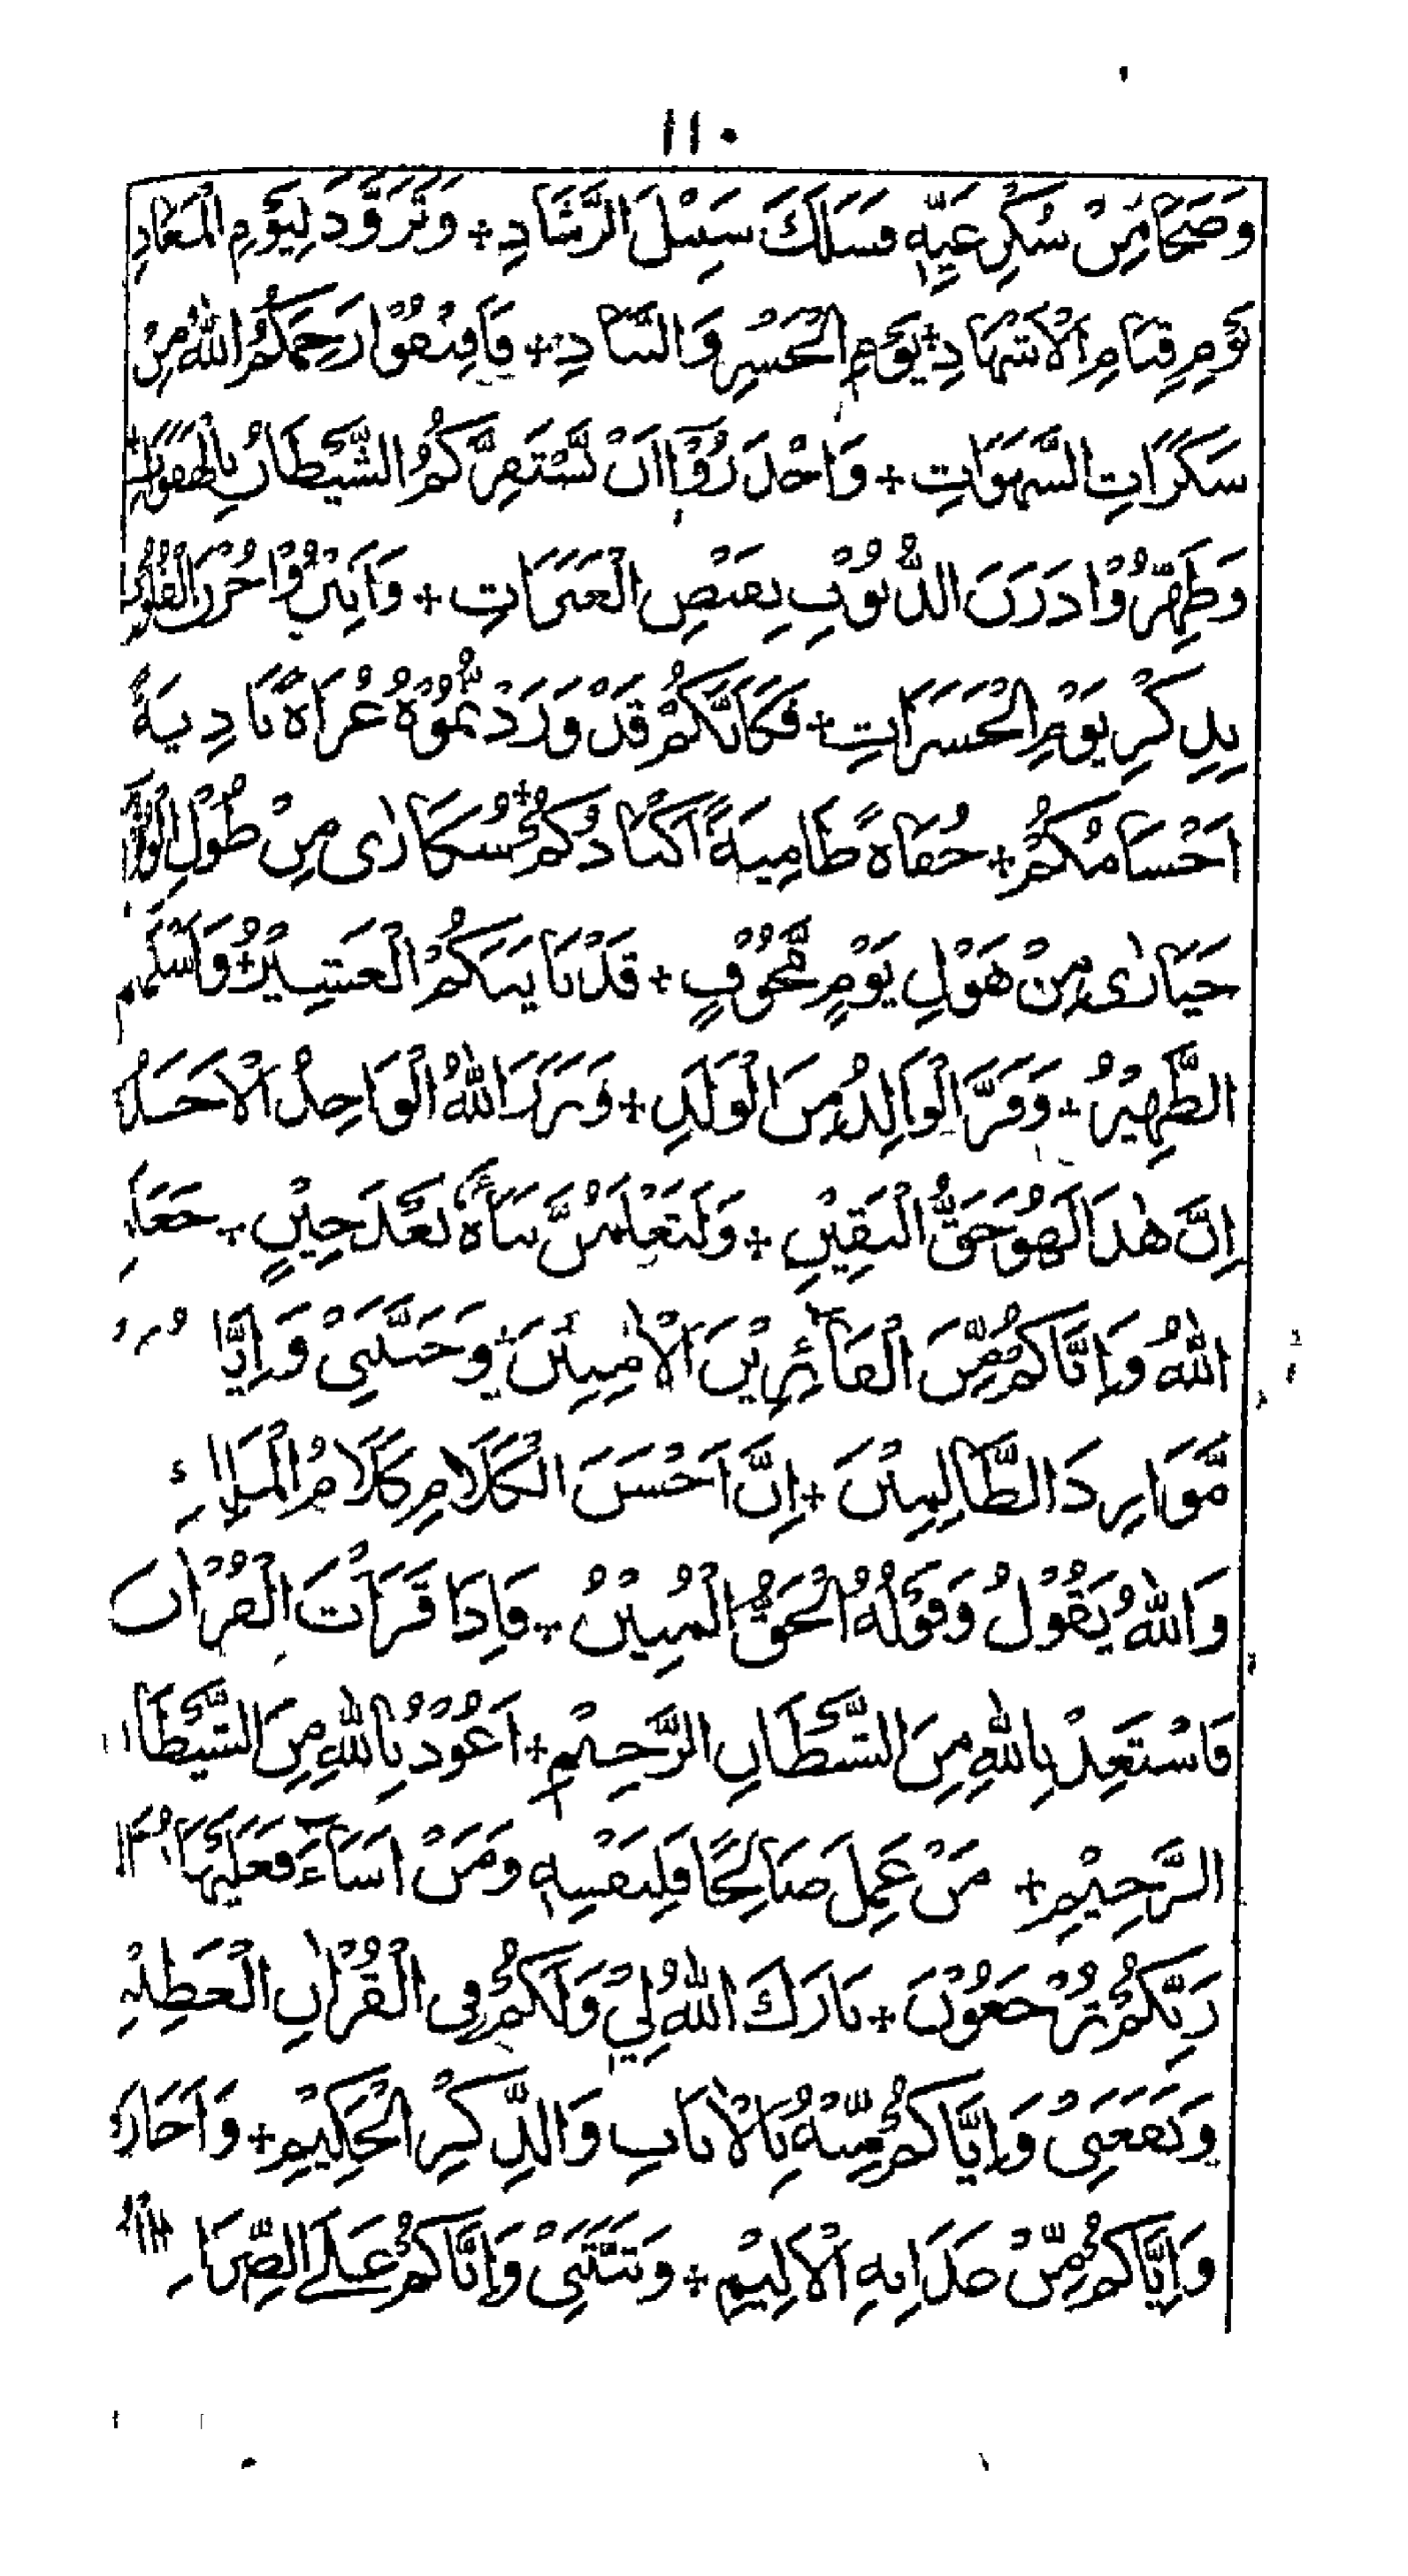 ١١٠
وَصَحَا مِنْ سُكْرِ غَيِّهٖ فَسَلَكَ سُبُلَ الرَّشَادِ + وَتَزَوَّدَ لِيَوْمِ الْمَعَادِ
يَوْمِ قِيَامِ الْاَشْهَادِ + يَوْمِ الْحَشْرِ وَالتَّنَادِ + فَاَفِيْقُوْا رَحِمَكُمُ اللهُ مِنْ
سَكَرَاتِ الشَّهَوَاتِ + وَاحْذَرُوْا اَنْ يَّسْتَفِزَّكُمُ الشَّيْطَانُ بِالْهَفَوَاتِ
وَطَهِّرُوْا دَرَنَ الذُّنُوْبِ بِفَيْضِ الْعَبَرَاتِ + وَاَبْنُوْا حُزْنَ الْقُلُوْبِ
بِذِكْرِ يَوْمِ الْحَسَرَاتِ + فَكَاَنَّكُمْ قَدْ وَرَدْتُمُوْهُ عُرَاةً بَادِيَةً
اَجْسَامُكُمْ + حُفَاةً ظَامِيَةً اَكْبَادُكُمْ + سُكَارٰى مِنْ طُوْلِ الْوُقُوْفِ
حَيَارٰى مِنْ هَوْلِ يَوْمٍ مَّخُوْفٍ + قَدْ بَايَنَكُمُ الْعَشِيْرُ + وَاَسْلَمَكُمُ
الظَّهِيْرُ + وَفَرَّ الْوَالِدُ مِنَ الْوَلَدِ + وَبَرَزَ اللهُ الْوَاحِدُ الْاَحَدُ
اِنَّ هٰذَا لَهُوَ حَقُّ الْيَقِيْنِ + وَلَتَعْلَمُنَّ نَبَاَهٗ بَعْدَ حِيْنٍ + جَعَلَنِيَ
اللهُ وَاِيَّاكُمْ مِّنَ الْفَآئِزِيْنَ الْاٰمِنِيْنَ + وَجَنَّبَنِيْ وَاِيَّاكُمْ
مَّوَارِدَ الظَّالِمِيْنَ + اِنَّ اَحْسَنَ الْكَلَامِ كَلَامُ الْمَلِكِ
وَاللهُ يَقُوْلُ وَقَوْلُهُ الْحَقُّ الْمُبِيْنُ + فَاِذَا قَرَأْتَ الْقُرْاٰنَ
فَاسْتَعِذْ بِاللهِ مِنَ الشَّيْطَانِ الرَّجِيْمِ + اَعُوْذُ بِاللهِ مِنَ الشَّيْطَانِ
الرَّجِيْمِ + مَنْ عَمِلَ صَالِحًا فَلِنَفْسِهٖ وَمَنْ اَسَآءَ فَعَلَيْهَا ثُمَّ اِلٰى
رَبِّكُمْ تُرْجَعُوْنَ + بَارَكَ اللهُ لِيْ وَلَكُمْ فِى الْقُرْاٰنِ الْعَظِيْمِ
وَنَفَعَنِيْ وَاِيَّاكُمْ مِّنْهُ بِالْاٰيَاتِ وَالذِّكْرِ الْحَكِيْمِ + وَاَجَارَنِيْ
وَاِيَّاكُمْ مِّنْ عَذَابِهِ الْاَلِيْمِ + وَثَبَّتَنِيْ وَاِيَّاكُمْ عَلَى الصِّرَاطِ